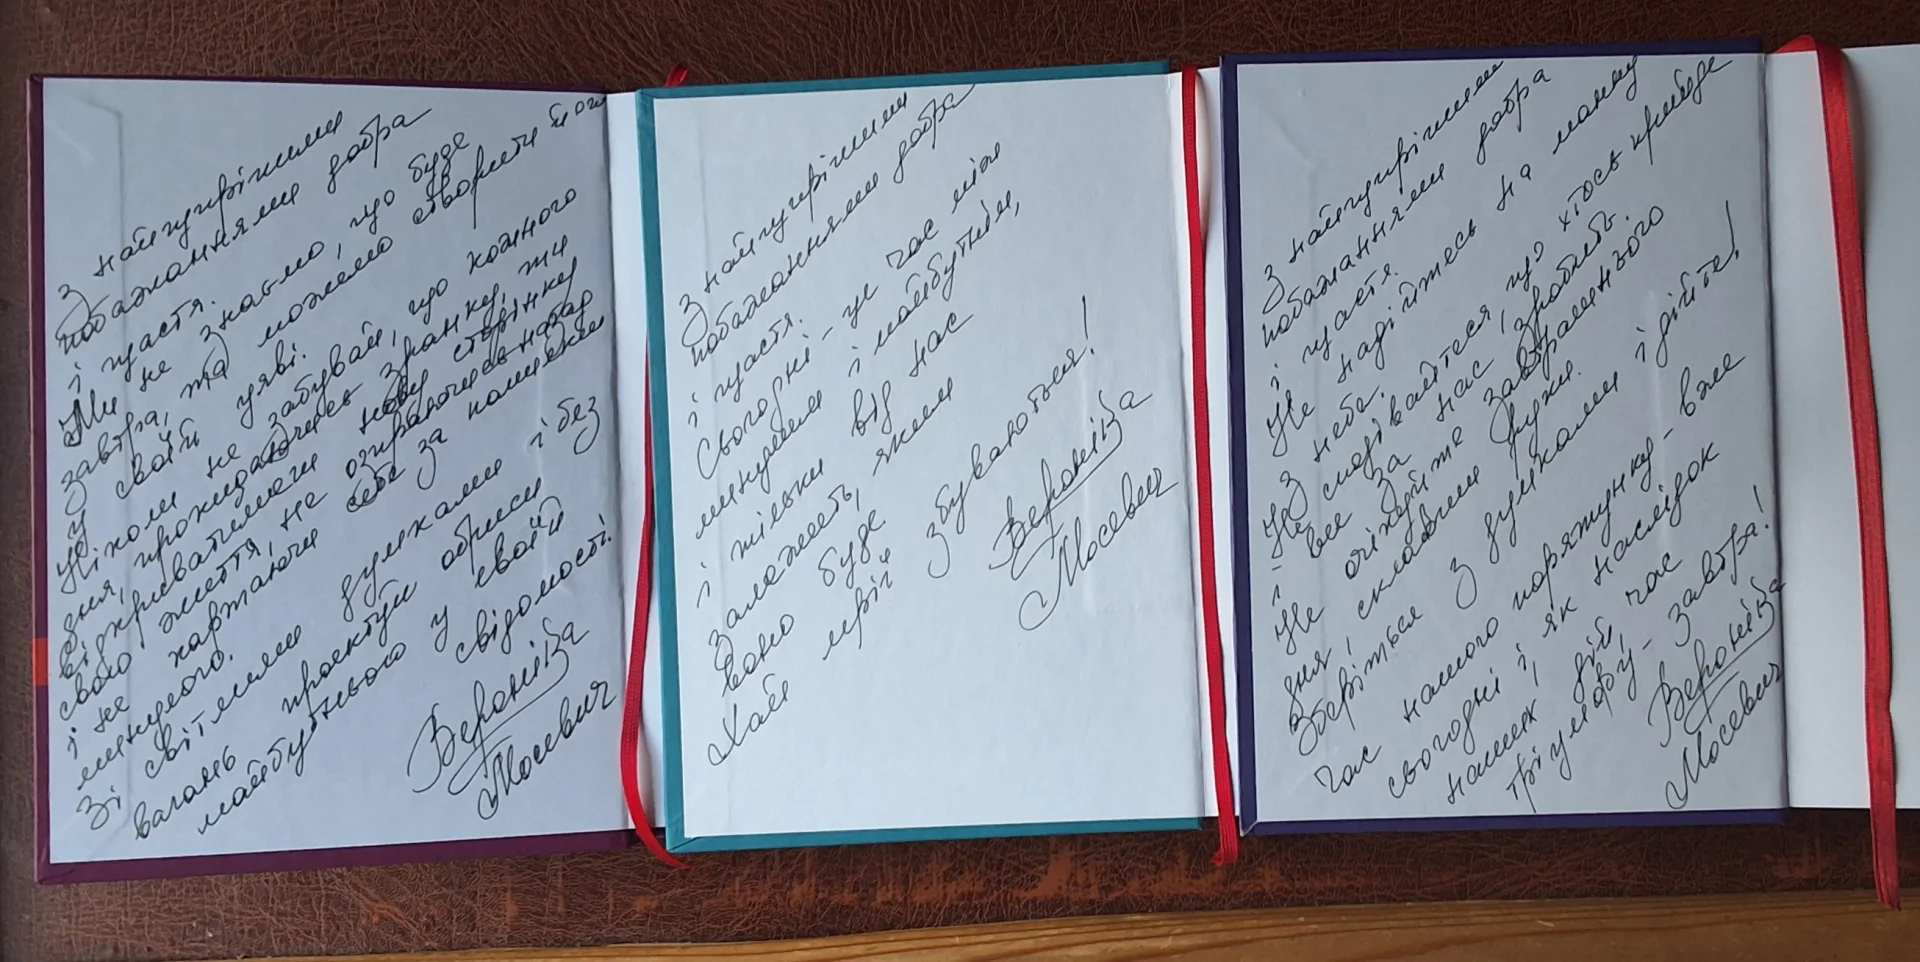 З найщирішими
побажаннями добра
і щастя.
Ми не знаємо, що буде
завтра, та можемо створити його
у своїй уяві.
Ніколи не забувай, що кожного
дня, прокидаючись зранку, ти
відкриватимеш нову сторінку
свого життя, не озираючись назад
і не картаючи себе за помилки
минулого.
Зі світлими думками і без
вагань проектуй обриси
майбутнього у своїй
свідомості!
Вероніка
Мосевич
З найщирішими
побажаннями добра
і щастя.
Сьогодні - це час між
минулим і майбутнім,
і тільки від нас
залежить, яким
воно буде
Хай мрії збуваються!
Вероніка
Мосевич
З найщирішими
побажаннями добра
і щастя.
Не надійтесь на манну
з неба.
Не сподівайтеся, що хтось прийде
і все за нас зробить.
Не очікуйте завтрашнього
дня, склавши руки.
Зберіться з думками і дійте!
Час нашого порятунку - вже
сьогодні і, як наслідок
наших дій, час
тріумфу - завтра!
Вероніка
Мосевич